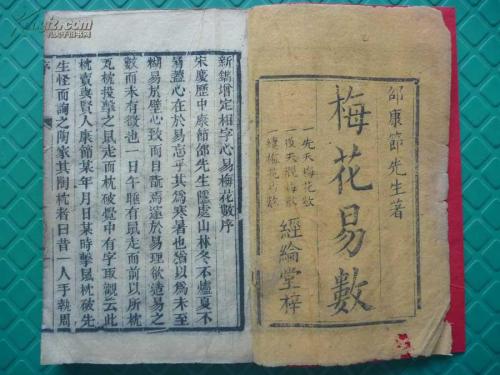 邵康節先生著
梅花易數
一先天梅花数
一後天觀梅数
一續梅花易数
經綸堂梓
新鐫增定相字心易梅花數序
宋慶歷中康節邵先生隱處山林冬不爐夏不
扇蓋心在於易忘乎其爲寒暑也猶以爲未至
糊易於壁心致而目翫焉邃於易理欲造易之
數而未有徵也一日午睡有鼠走而前以所枕
瓦枕投擊之鼠走而枕破覺中有字取觀云此
枕賣與賢人康節某年月日某時擊鼠枕破先
生怪而詢之陶家其陶枕者曰昔一人手執周
序